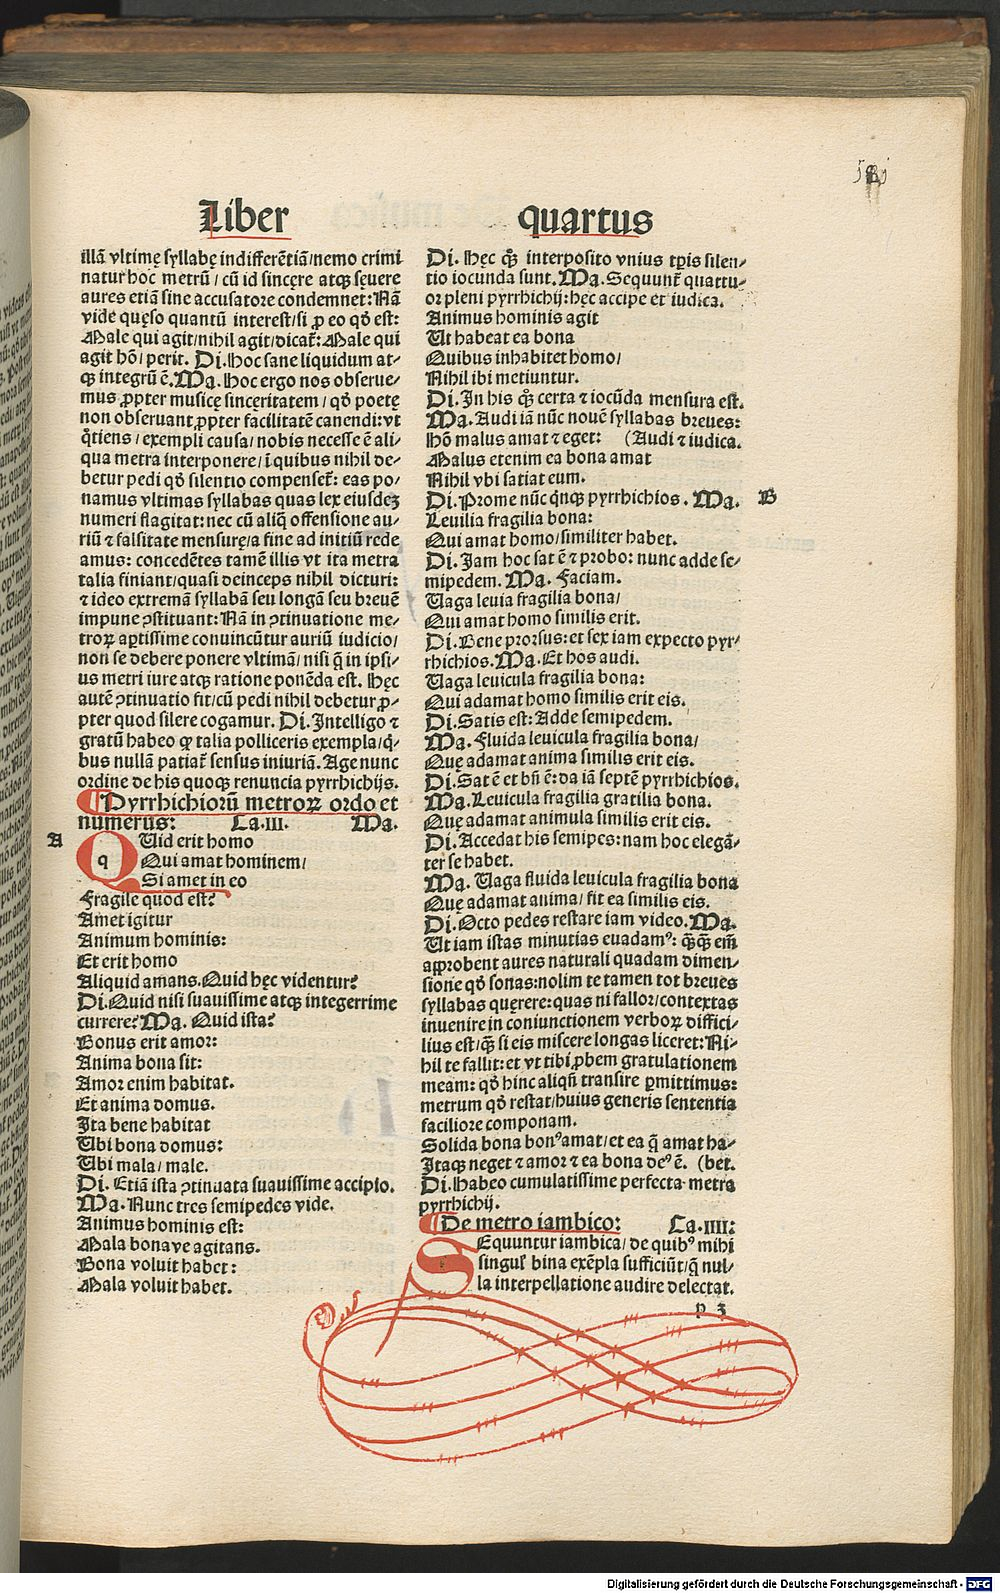 Liber quartus
illã vltimę syllabę indifferẽtiã/nemo crimi
natur hoc metrũ/cũ id sincęre atqꝫ sęuere
aures etiã sine accusatore condemnet: Nã
vide quęso quantũ interest/si ꝓ eo qđ est:
Male qui agit/nihil agit/dicat᷑: Male qui
agit hõ/perit. Di. Hoc sane liquidum at⸗
qꝫ integrũ ẽ. Ma. Hoc ergo nos obserue⸗
mus ꝓpter musicę sincęritatem/qđ poetę
non obseruant ꝓpter facilitatẽ canendi: vt
q̃tiens/exempli causa/nobis necesse ẽ ali⸗
qua metra interponere/ĩ quibus nihil de⸗
betur pedi qđ silentio compenset᷑: eas po⸗
namus vltimas syllabas quas lex eiusdeꝫ
numeri flagitat: nec cũ aliq̃ offensione au⸗
riũ ⁊ falsitate mensurę/a fine ad initiũ rede
amus: concedẽtes tamẽ illis vt ita metra
talia finiant/quasi deinceps nihil dicturi:
⁊ ideo extremã syllabã seu longã seu breuẽ
impune ꝯstituant: Nã in ꝯtinuatione me⸗
troꝝ aꝑtissime conuincũtur auriũ iudicio/
non se debere ponere vltimã/nisi q̃ in ipsi⸗
us metri iure atqꝫ ratione ponẽda est. Hęc
autẽ ꝯtinuatio fit/cũ pedi nihil debetur ꝓ⸗
pter quod silere cogamur. Di. Intelligo ⁊
gratũ habeo qꝫ talia polliceris exempla/q̃⸗
bus nullã patiar᷑ sensus iniuriã. Age nunc
ordine de his quoqꝫ renuncia pyrrhichijs.
¶Pyrrhichiorũ metroꝝ ordo et
numerus: Ca.III. Ma.
A
q
QVid erit homo
Qui amat hominem/
Si amet in eo
Fragile quod est?
Amet igitur
Animum hominis:
Et erit homo
Aliquid amans. Quid hęc videntur?
Di. Quid nisi suauissime atqꝫ integerrime
currere? Ma. Quid ista?
Bonus erit amor:
Anima bona sit:
Amor enim habitat.
Et anima domus.
Ita bene habitat
Ubi bona domus:
Ubi mala/male.
Di. Etiã ista ꝯtinuata suauissime accipio.
Ma. Nunc tres semipedes vide.
Animus hominis est:
Mala bonave agitans.
Bona voluit habet:
Mala voluit habet.
Di. Hęc qꝫ interposito vnius tꝑis silen⸗
tio iocunda sunt. Ma. Sequunt᷑ quattu⸗
or pleni pyrrhichij: hęc accipe et iudica.
Animus hominis agit
Ut habeat ea bona
Quibus inhabitet homo/
Nihil ibi metiuntur.
Di. In his qꝫ certa ⁊ iocũda mensura est.
Ma. Audi iã nũc nouẽ syllabas breues:
Hõ malus amat ⁊ eget: (Audi ⁊ iudica.
Malus etenim ea bona amat
Nihil vbi satiat eum.
Di. Prome nũc q̃nqꝫ pyrrhichios. Ma.
B
Leuilia fragilia bona:
Qui amat homo/similiter habet.
Di. Jam hoc sat ẽ ⁊ probo: nunc adde se⸗
mipedem. Ma. Faciam.
Vaga levia fragilia bona/
Qui amat homo similis erit.
Di. Bene prorsus: et sex iam expecto pyr⸗
rhichios. Ma. Et hos audi.
Vaga leuicula fragilia bona:
Qui adamat homo similis erit eis.
Di. Satis est: Adde semipedem.
Ma. Fluida leuicula fragilia bona/
Quę adamat anima similis erit eis.
Di. Sat ẽ et bñ ẽ: da iã septẽ pyrrhichios.
Ma. Leuicula fragilia gratilia bona.
Quę adamat animula similis erit eis.
Di. Accedat his semipes: nam hoc elegã⸗
ter se habet.
Ma. Vaga fluida leuicula fragilia bona
Quę adamat anima/fit ea similis eis.
Di. Octo pedes restare iam video. Ma.
Ut iam istas minutias euadamꝰ: q̃q̃ em̃
aꝓbent aures naturali quadam dimen⸗
sione qđ sonas: nolim te tamen tot breues
syllabas quęrere: quas ni fallor/contextas
inuenire in coniunctionem verboꝝ diffici⸗
lius est/qꝫ si eis miscere longas liceret: Ni⸗
hil te fallit: et vt tibi ꝓbem gratulationem
meam: qđ hinc aliqñ transire ꝑmittimus:
metrum qđ restat/huius generis sententia
faciliore componam.
Solida bona bonꝰ amat/et ea q̃ amat ha⸗
Itaqꝫ neget ⁊ amor ⁊ ea bona deꝰ ẽ. (bet.
Di. Habeo cumulatissime perfecta metra
pyrrhichij.
¶De metro iambico: Ca.IIII:
SEquuntur iambica/de quibꝰ mihi
singul᷑ bina exẽpla sufficiũt/q̃ nul⸗
la interpellatione audire delectat.
p 3
Digitalisierung gefördert durch die Deutsche Forschungsgemeinschaft - DFG